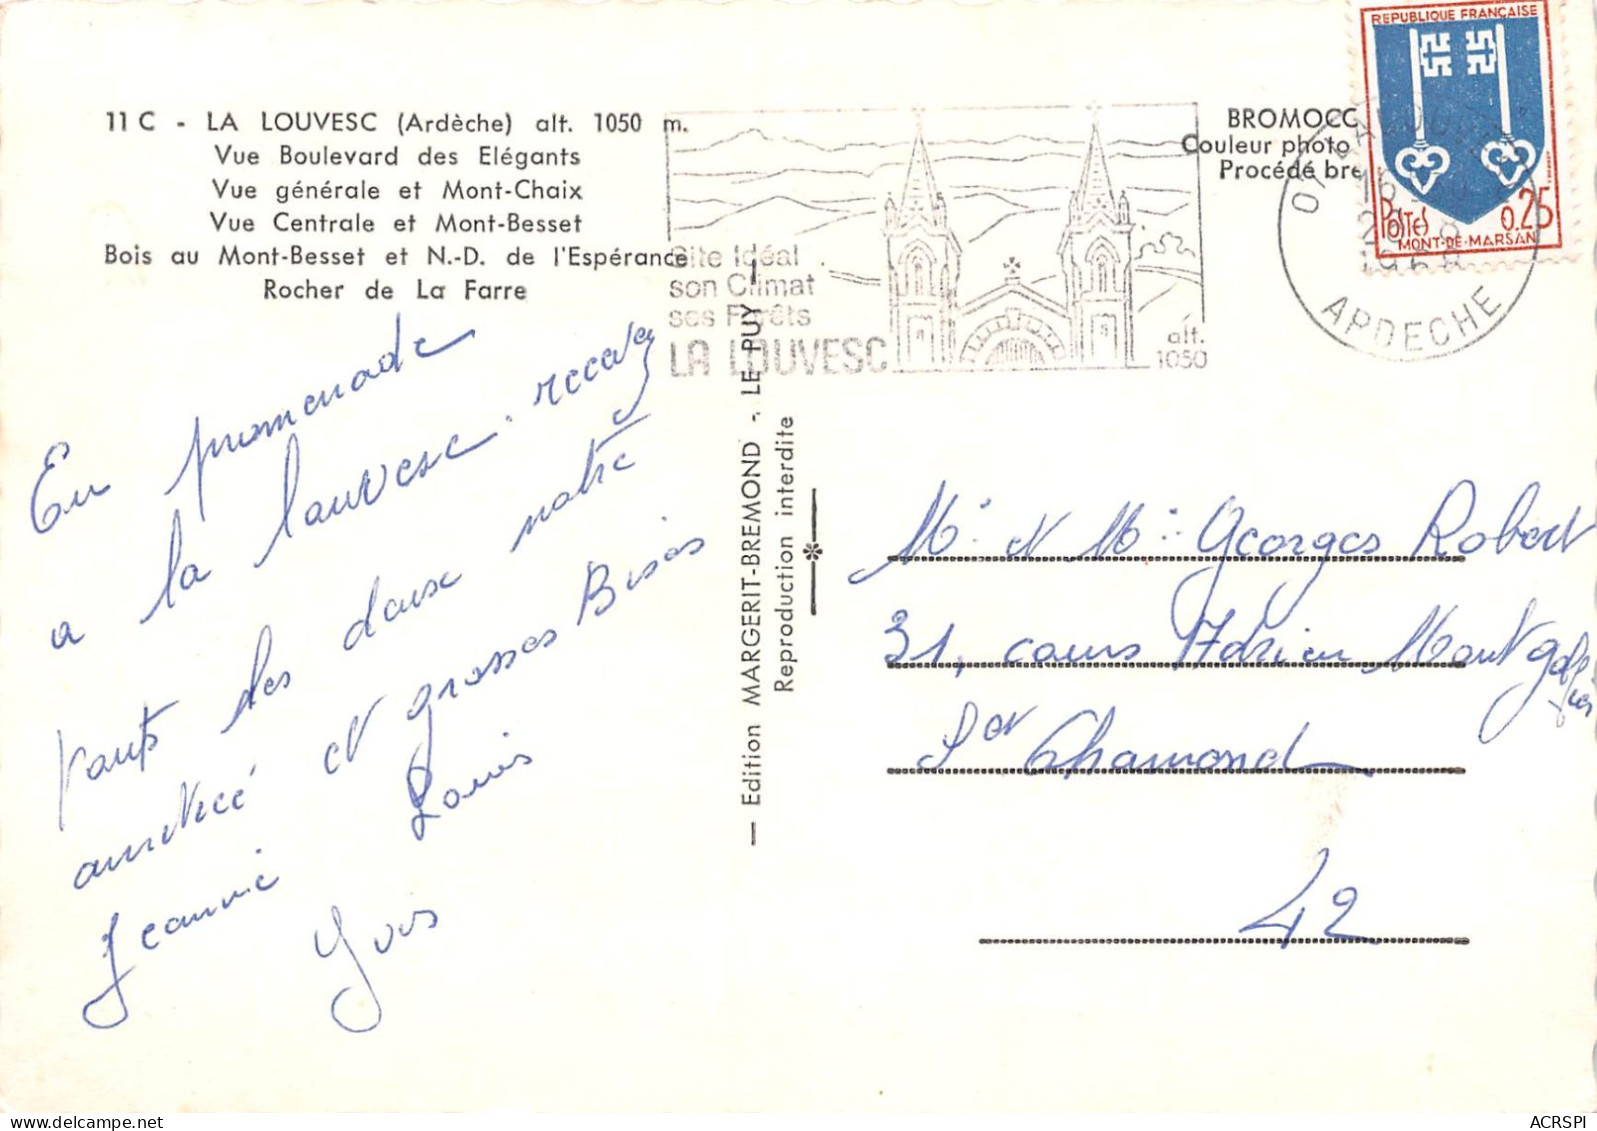 11 C - LA LOUVESC (Ardèche) alt. 1050 m.
Vue Boulevard des Elégants
Vue générale et Mont-Chaix
Vue Centrale et Mont-Besset
Bois au Mont-Besset et N.-D. de l'Espérance
Rocher de La Farre
En promenade
a la Louvesc. recevez
tous les deux notre
amitié et grosses Bises
Jeannie Louis
Yves
Site Idéal
son Climat
ses Forêts
LA LOUVESC
alt.
1050
— Edition MARGERIT-BREMOND - LE PUY —
Reproduction interdite
BROMOCO
Couleur photo
Procédé bre
REPUBLIQUE FRANÇAISE
POSTES 0,25
MONT-DE-MARSAN
07 LA LOUVESC
ARDECHE
Mr et Me Georges Robert
31, cours Adrien Montgolfier
St Chamond
42
ACRSPI